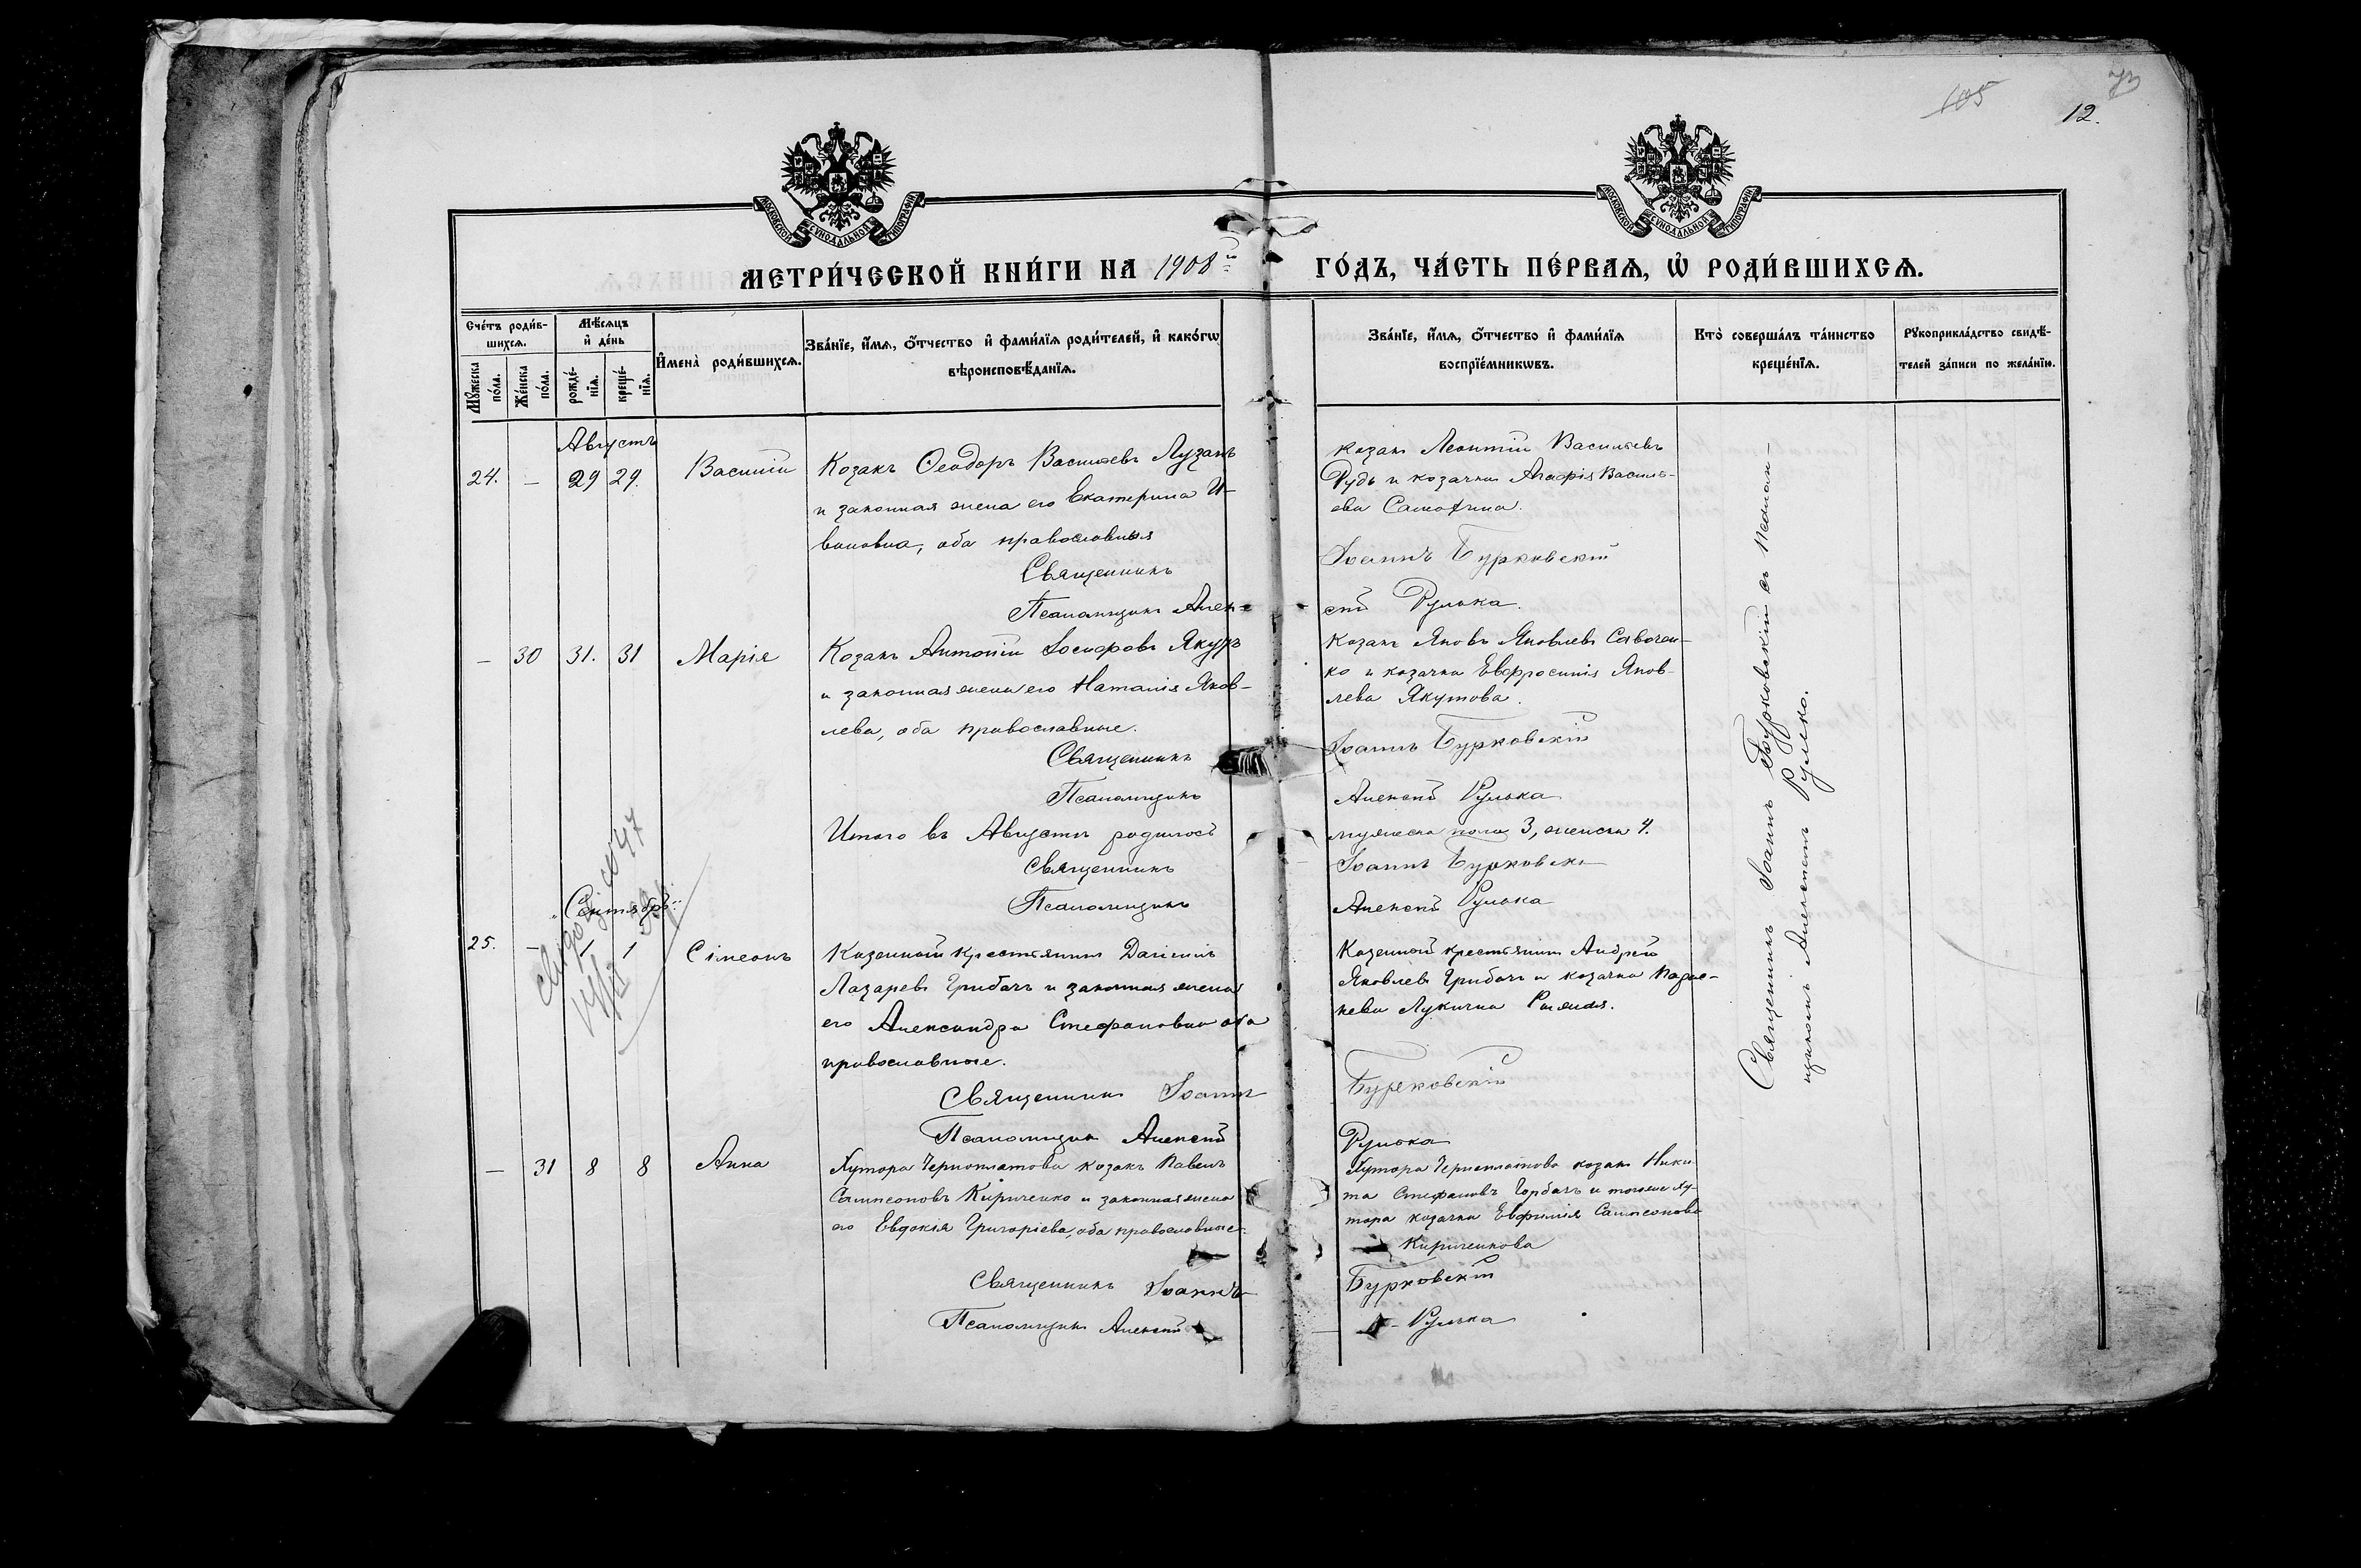 105
12.
МОСКОВСКОЙ СУНОДАЛЬНОЙ ТИПОГРАФІИ
МОСКОВСКОЙ СУНОДАЛЬНОЙ ТИПОГРАФІИ
МЕТРИ́ЧЕСКОЙ КНИ́ГИ НА 1908й ГО́ДЪ, ЧА́СТЬ ПЕ́РВАѦ, Ѡ҆ РОДИ́ВШИХСѦ.
Сче́тъ роди́в-
шихсѧ.
Мꙋжеска по́ла.
Же́нска по́ла.
Мѣ́сяцъ
и҆ де́нь
рожде́-
нїѧ.
креще́-
нїѧ.
И҆мена̀ роди́вшихсѧ.
Зва́нїе, и҆́мѧ, ѻ҆́тчество и҆ фами́лїѧ роди́телей, и҆ како́гѡ
вѣроисповѣ́данїѧ.
Зва́нїе, и҆́мѧ, ѻ҆́тчество и҆ фами́лїѧ
воспрїе́мникѡвъ.
Кто̀ соверша́лъ та́инство
креще́нїѧ.
Рꙋкоприкла́дство свидѣ́-
телей за́писи по жела́нїю.
Августъ
24. — 29 29. Василій
Козакъ Ѳеодоръ Васильевъ Лузанъ
и законная жена его Екатерина И-
вановна, оба православныя
Священникъ
Псаломщикъ Алек-
Козакъ Леонтій Васильевъ
Рудь и козачка Агафія Василь-
ева
Іоаннъ Бурковскій
сѣй Рулька.
— 30 31. 31 Марія
Козакъ Антоній Іосифовъ
и законная жена его Наталія Яков-
лева, оба православные.
Священникъ
Псаломщикъ
Козакъ Яковъ Яковлевъ Савочен-
ко и козачка Евфросинія Яков-
лева Якутова.
Іоаннъ Бурковскій
Алексѣй Рулька
Итого въ Августѣ родилось
мужеска пола 3, женска 4.
Священникъ
Іоаннъ Бурковскі
Псаломщикъ
Алексѣй Рулька
Сентябрь
25. — 1 1 Сімеонъ
Казенный крестьянинъ Даніилъ
Лазаревъ Грибачъ и законная жена
его Александра Стефановна оба
православные.
Священникъ Іоаннъ
Псаломщикъ Алексѣй
Казенный крестьянинъ Андрей
Яковлевъ Грибачъ и козачка
Лукична
Бурковскій
Рулька
— 31 8 8 Анна
Хутора Черноплатова козакъ Павелъ
Сампсоновъ Кириченко и законная жена
его Евдокія Григоріева, оба православные.
Священникъ Іоаннъ
Псаломщикъ Алексѣй
Хутора Черноплатова козакъ Ники-
та Стефановъ Горбачъ и того же ху-
тора козачка Евфимія Сампсонова
Кириченкова
Бурковскій
Рулька
Священникъ Іоаннъ Бурковскій съ псалом-
щикомъ Алексѣемъ Рулькою.